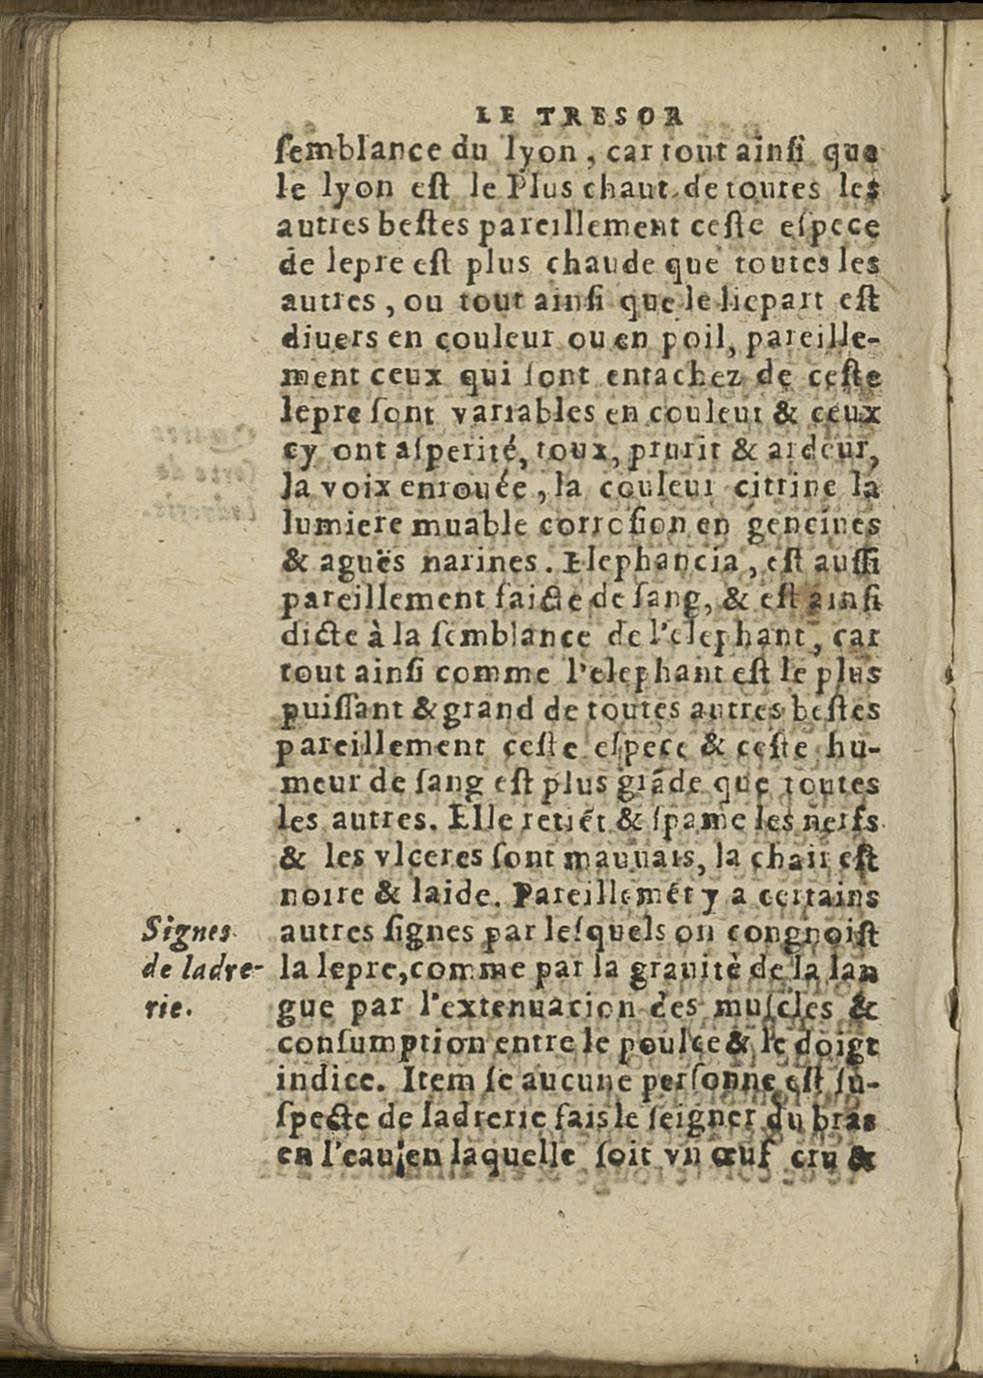 LE TRESOR
ſemblance du lyon, car tout ainſi que
le lyon eſt le Plus chaut de toutes les
autres beſtes pareillement ceſte eſpece
de lepre eſt plus chaude que toutes les
autres, ou tout ainſi que le liepart eſt
diuers en couleur ou en poil, pareille-
ment ceux qui ſont entachez de ceſte
lepre ſont variables en couleur & ceux
cy ont aſperité, toux, prurit & ardeur,
la voix enrouée, la couleur citrine la
lumiere muable corroſion en genciues
& aguës narines. Elephancia, eſt auſſi
pareillement faicte de ſang, & eſt ainſi
dicte à la ſemblance de l'elephant, car
tout ainſi comme l'elephant eſt le plus
puiſſant & grand de toutes autres beſtes
pareillement ceſte eſpece & ceſte hu-
meur de ſang eſt plus grãde que toutes
les autres. Elle retiẽt & ſpame les nerfs
& les vlceres ſont mauuais, la chair eſt
noire & laide. Pareillemẽt y a certains
autres ſignes par leſquels on congnoiſt
la lepre, comme par la grauitè de la lan
gue par l'extenuation des muſcles &
conſumption entre le poulce & le doigt
indice. Item ſe aucune perſonne eſt ſu-
ſpecte de ladrerie fais le ſeigner du bras
en l'eau, en laquelle ſoit vn œuf cru &
Signes
de ladre-
rie.